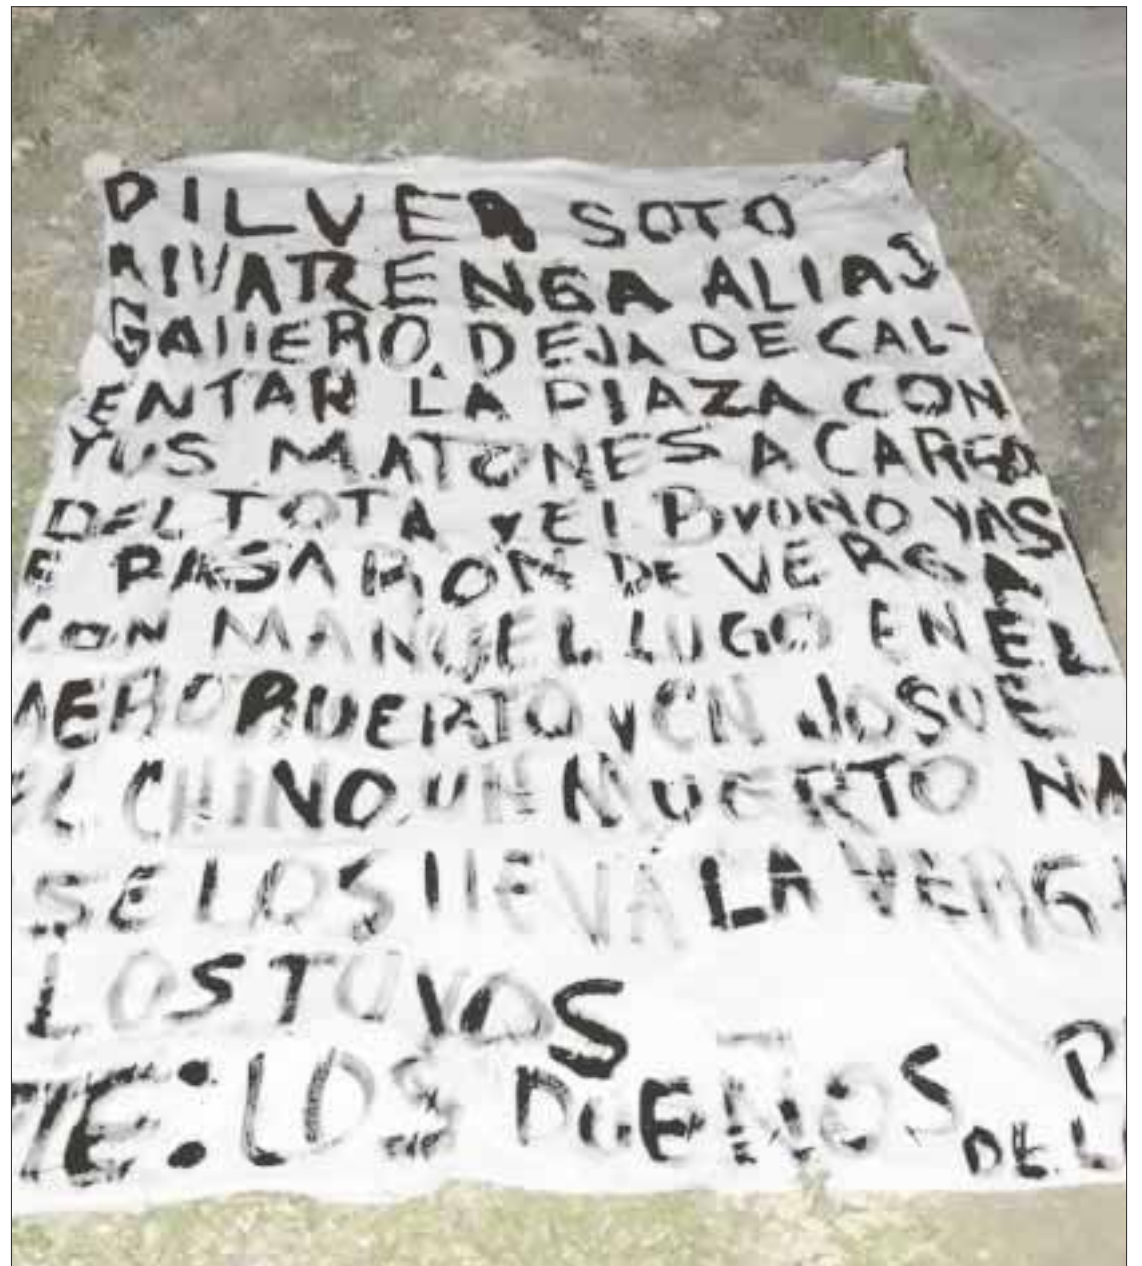 DILVER SOTO
RIVARENGA ALIAS
GALLERO. DEJA DE CAL-
ENTAR LA PLAZA CON
TUS MATONES A CARGO
DEL TOTA Y EL BVONO YAS
E PASARON DE VERGA
CON MANUEL LUGO EN EL
AEROPUERTO Y CN JOSUE
EL CHINO. UN MUERTO
SE LOS LLEVA LA VERG
LOS TUYOS
TE: LOS DUEÑOS DE L P